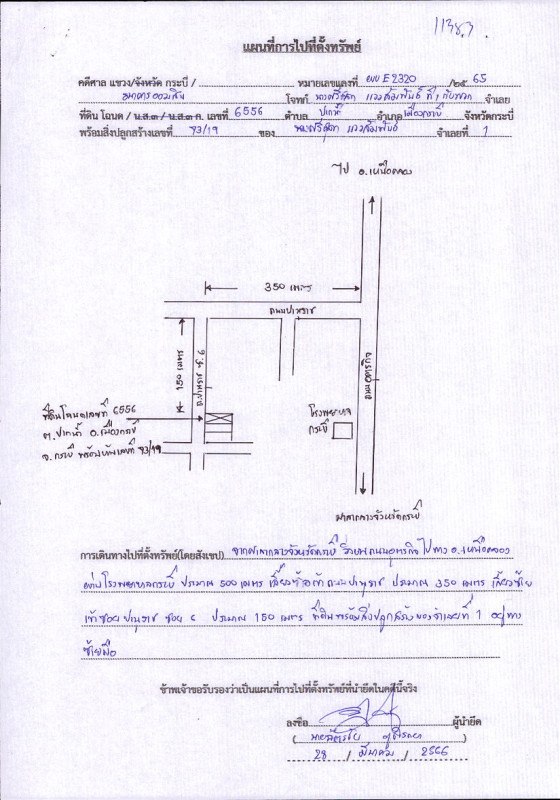 11383
แผนที่การไปที่ตั้งทรัพย์
คดีศาล แขวง/จังหวัด กระบี่ / หมายเลขแดงที่ ผบ E2320 /๒๕ 65
ธนาคารออมสิน โจทก์ ที่ 1 กับพวก จำเลย
ที่ดิน โฉนด / น.ส.๓ / น.ส.๓ ก. เลขที่ 6556 ตำบล ปากน้ำ อำเภอ เมืองกระบี่ จังหวัดกระบี่
พร้อมสิ่งปลูกสร้างเลขที่ 93/19 ของ จำเลยที่ 1
ไป อ.เหนือคลอง
350 เมตร
ถนนปานุราช
150 เมตร
ซ.ปานุราช ซ. 6
ถ.อุตรกิจ
ที่ดินโฉนดเลขที่ 6556
ต.ปากน้ำ อ.เมืองกระบี่
จ.กระบี่ พร้อมบ้านเลขที่ 93/19
โรงพยาบาล
กระบี่
ศาลากลางจังหวัดกระบี่
การเดินทางไปที่ตั้งทรัพย์(โดยสังเขป) จากศาลากลางจังหวัดกระบี่ วิ่งบนถนนอุตรกิจ ไปทาง อ.เหนือคลอง
ผ่านโรงพยาบาลกระบี่ ประมาณ 500 เมตร เลี้ยวซ้ายเข้าถนนปานุราช ประมาณ 350 เมตร เลี้ยวซ้าย
เข้าซอยปานุราช ซอย 6 ประมาณ 150 เมตร ที่ดินพร้อมสิ่งปลูกสร้างของจำเลยที่ 1 อยู่ทาง
ซ้ายมือ
ข้าพเจ้าขอรับรองว่าเป็นแผนที่การไปที่ตั้งทรัพย์ที่นำยึดในคดีนี้จริง
ลงชื่อ ผู้นำยึด
28 / มีนาคม / 2566